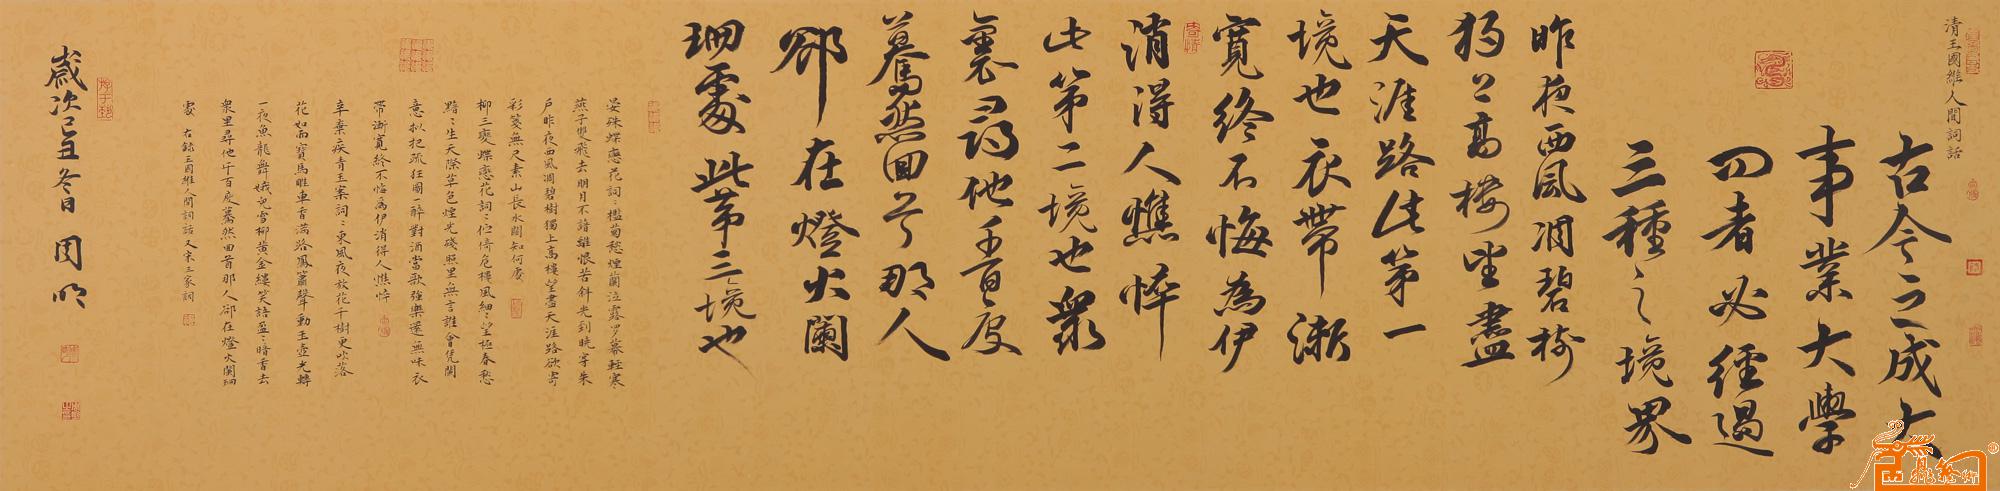 清王國維人間詞話
古今之成大
事業大學
四者必經過
三種之境界
昨夜西風凋碧樹
獨上高樓望盡
天涯路此第一
境也衣帶漸
寬終不悔為伊
消得人憔悴
此第二境也眾
裏尋他千百度
驀然回首那人
卻在燈火闌
珊處此第三境也
晏殊蝶戀花詞：檻菊愁煙蘭泣露羅幕輕寒
燕子雙飛去明月不諳離恨苦斜光到曉穿朱
戶昨夜西風凋碧樹獨上高樓望盡天涯路欲寄
彩箋無尺素山長水闊知何處
柳三變蝶戀花詞：佇倚危樓風細：望極春愁
黯：生天際草色煙光殘照里無言誰會凭闌
意拟把疏狂圖一醉對酒當歌強樂還無味衣
帶漸寬終不悔為伊消得人憔悴
辛棄疾青玉案詞：東風夜放花千樹更吹落
花如雨寶馬雕車香滿路鳳簫聲動玉壺光轉
一夜魚龍舞蛾兒雪柳黃金縷笑語盈：暗香去
衆里尋他千百度驀然回首那人卻在燈火闌珊
處 右錄王國維人間詞話又宋三家詞
歲次己丑冬日 周明